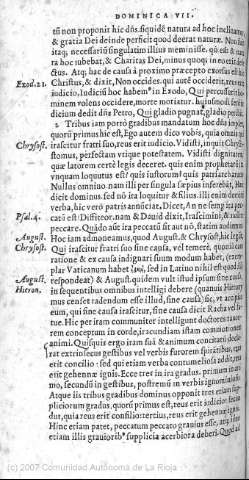 DOMINICA VII.
tū non proponit hic dñs. siquidē natura ad hoc ineluct
& gratia Dei deinde perficit quod deerat naturæ. Non
itaq; necessariū singulatim illius meminisse. qd est &
ra hoc iubebat, & Charitas Dei, minus quoq; in eo
ctus. Atq; hac de causa à proximo præcepto exorsus est
Exod. 21. Christus, & dixit, Non occides. qui autē occiderit, reus erit
iudicio. Iudiciū hoc habem⁹ in Exodo, Qui percusserit ho
minem volens occidere, morte moriatur. huiusmodi
dicium dedit dñs Petro, Qui gladio pugnat, gladio
2 Tribus iam porrò gradibus mandatum hoc dñs
quorū primus hic est, Ego autem dico vobis, quia omnis qui
Chrysost. irascitur fratri suo, reus erit iudicio. Vidisti, inquit Chryso-
stomus, perfectam vtique potestatem. Vidisti dignitatem
quæ latorem certè legis deceret. quis enim prophetarū
vnquam loquutus est? quis iustorum? quis patriarcharum
Nullus omnino. nam illi per singula sæpius inserebāt, Hæc
dicit dominus. sed nō ita loquitur & filius. illi enim domini
verba, hic verò patris annūciat. Dicet, An ne semp ira pec
Psal. 4. catū est? Distictor. nam & Dauid dixit, Irascimini, & nolite
peccare. Quādo aūt ira peccatū sit aut nō, statim audiemus.
August. Hoc iam admoneamus, quod August. & Chrysost. hic legūt
Chrysost. Qui irascitur fratri suo sine causa, vel temerè, quod si cum
ratione & ex causa indignari suum modum habet, (exem
plar Vaticanum habet ἰυη, sed in Latino nihil est quod illi
August. respondeat) & August. quidem vult istud ipsum sine causa
Hieron. in sequentibus omnibus intelligi debere (quanuis Hieron
mus censet radendum esse illud, sine causa) sic, vt accipia
eum, qui sine causa irascitur, sine causa dicit Racha vel fa
tue. Hic per iram communiter intelligunt doctores
rem conceptum in corde, iracundiam istam commotionem
animi. Quisquis ergo iram suā & animum concitatū decla
rat extrinsecus gestibus vel verbis furorem spirātibus, reus
erit concilio: sed qui etiam verba contumeliosa addit, reus
erit gehennæ ignis. Ecce tres in ira gradus. primus in ani
mo, secundū in gestibus, postremū in verbis ignominiosis
Atque iis tribus gradibus dominus opponit tres etiam sup
pliciorum gradus, quorū primus est, reus erit iudicio:
dus, quia reus erit concilio: tertius, reus erit gehennæ
Hinc etiam patet, peccatum peccato grauius esse, atq; ideo
etiam illis grauiorib⁹ supplicia acerbiora deberi. Quod ad
(c) 2007 Comunidad Autónoma de La Rioja